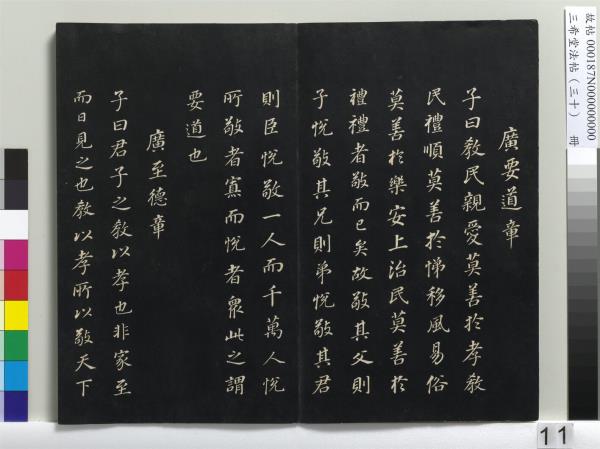 廣要道章
子曰教民親愛莫善於孝教
民禮順莫善於悌移風易俗
莫善於樂安上治民莫善於
禮禮者敬而已矣故敬其父則
子悅敬其兄則弟悅敬其君
則臣悅敬一人而千萬人悅
所敬者寡而悅者眾此之謂
要道也
廣至德章
子曰君子之教以孝也非家至
而日見之也教以孝所以敬天下
故帖 000187N000000000
三希堂法帖(三十) 冊
11